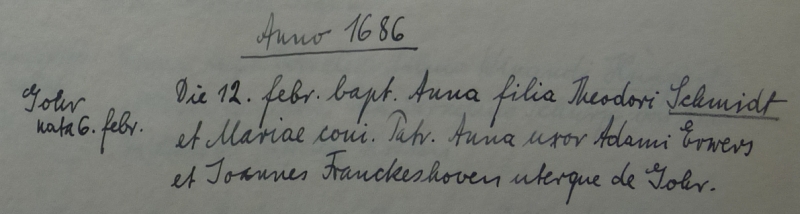 Anno 1686
Gohr
nata 6. febr.
Die 12. febr. bapt. Anna filia Theodori Schmidt
et Mariae coni. Patr. Anna uxor Adami Erwers
et Joannes Franckeshoven uterque de Gohr.